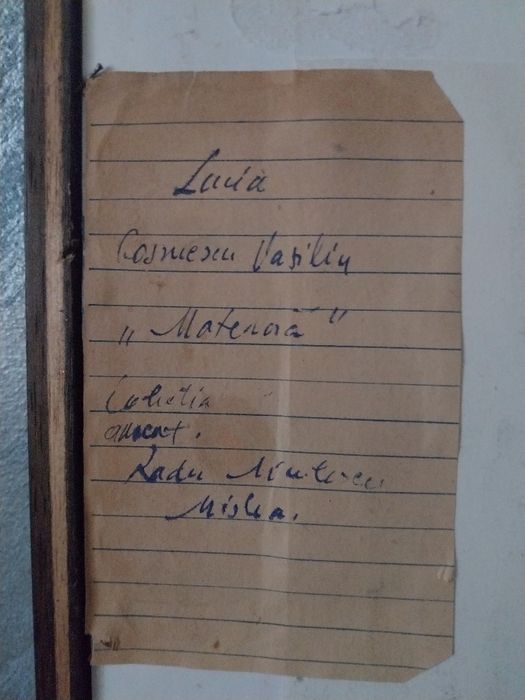 Lucia
Cosmescu Vasiliu
„Maternă"
Colecția
avocat.
Radu
Mislea.